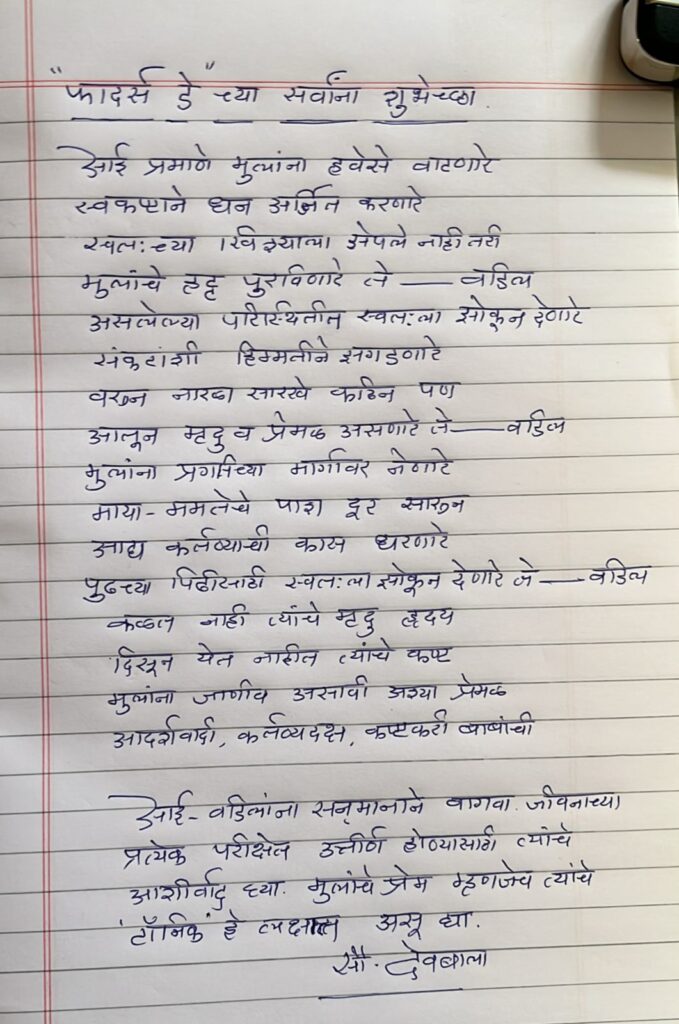 "फादर्स डे" च्या सर्वांना शुभेच्छा.
आई प्रमाणे मुलांना हवेसे वाटणारे
स्वकष्टाने धन अर्जित करणारे
स्वतःच्या खिश्याला झेपले नाही तरी
मुलांचे हट्ट पुरविणारे ते — वडिल
असलेल्या परिस्थितीत स्वतःला झोकून देणारे
संकटांशी हिम्मतीने झगडणारे
वरुन नारळा सारखे कठिन पण
आतून मृदु व प्रेमळ असणारे ते — वडिल
मुलांना प्रगतिच्या मार्गावर नेणारे
माया-ममतेचे पाश दूर सारुन
आद्य कर्तव्याची कास धरणारे
पुढच्या पिढीसाठी स्वतःला झोकून देणारे ते — वडिल
कळत नाही त्यांचे मृदु हृदय
दिसून येत नाहीत त्यांचे कष्ट
मुलांना जाणीव असावी अश्या प्रेमळ
आदर्शवादी, कर्तव्यदक्ष, कष्टकरी बाबांची
आई-वडिलांना सन्मानाने वागवा. जीवनाच्या
प्रत्येक परीक्षेत उत्तीर्ण होण्यासाठी त्यांचे
आशीर्वाद घ्या. मुलांचे प्रेम म्हणजेच त्यांचे
'टॉनिक' हे लक्षात असू द्या.
सौ. देवबाला